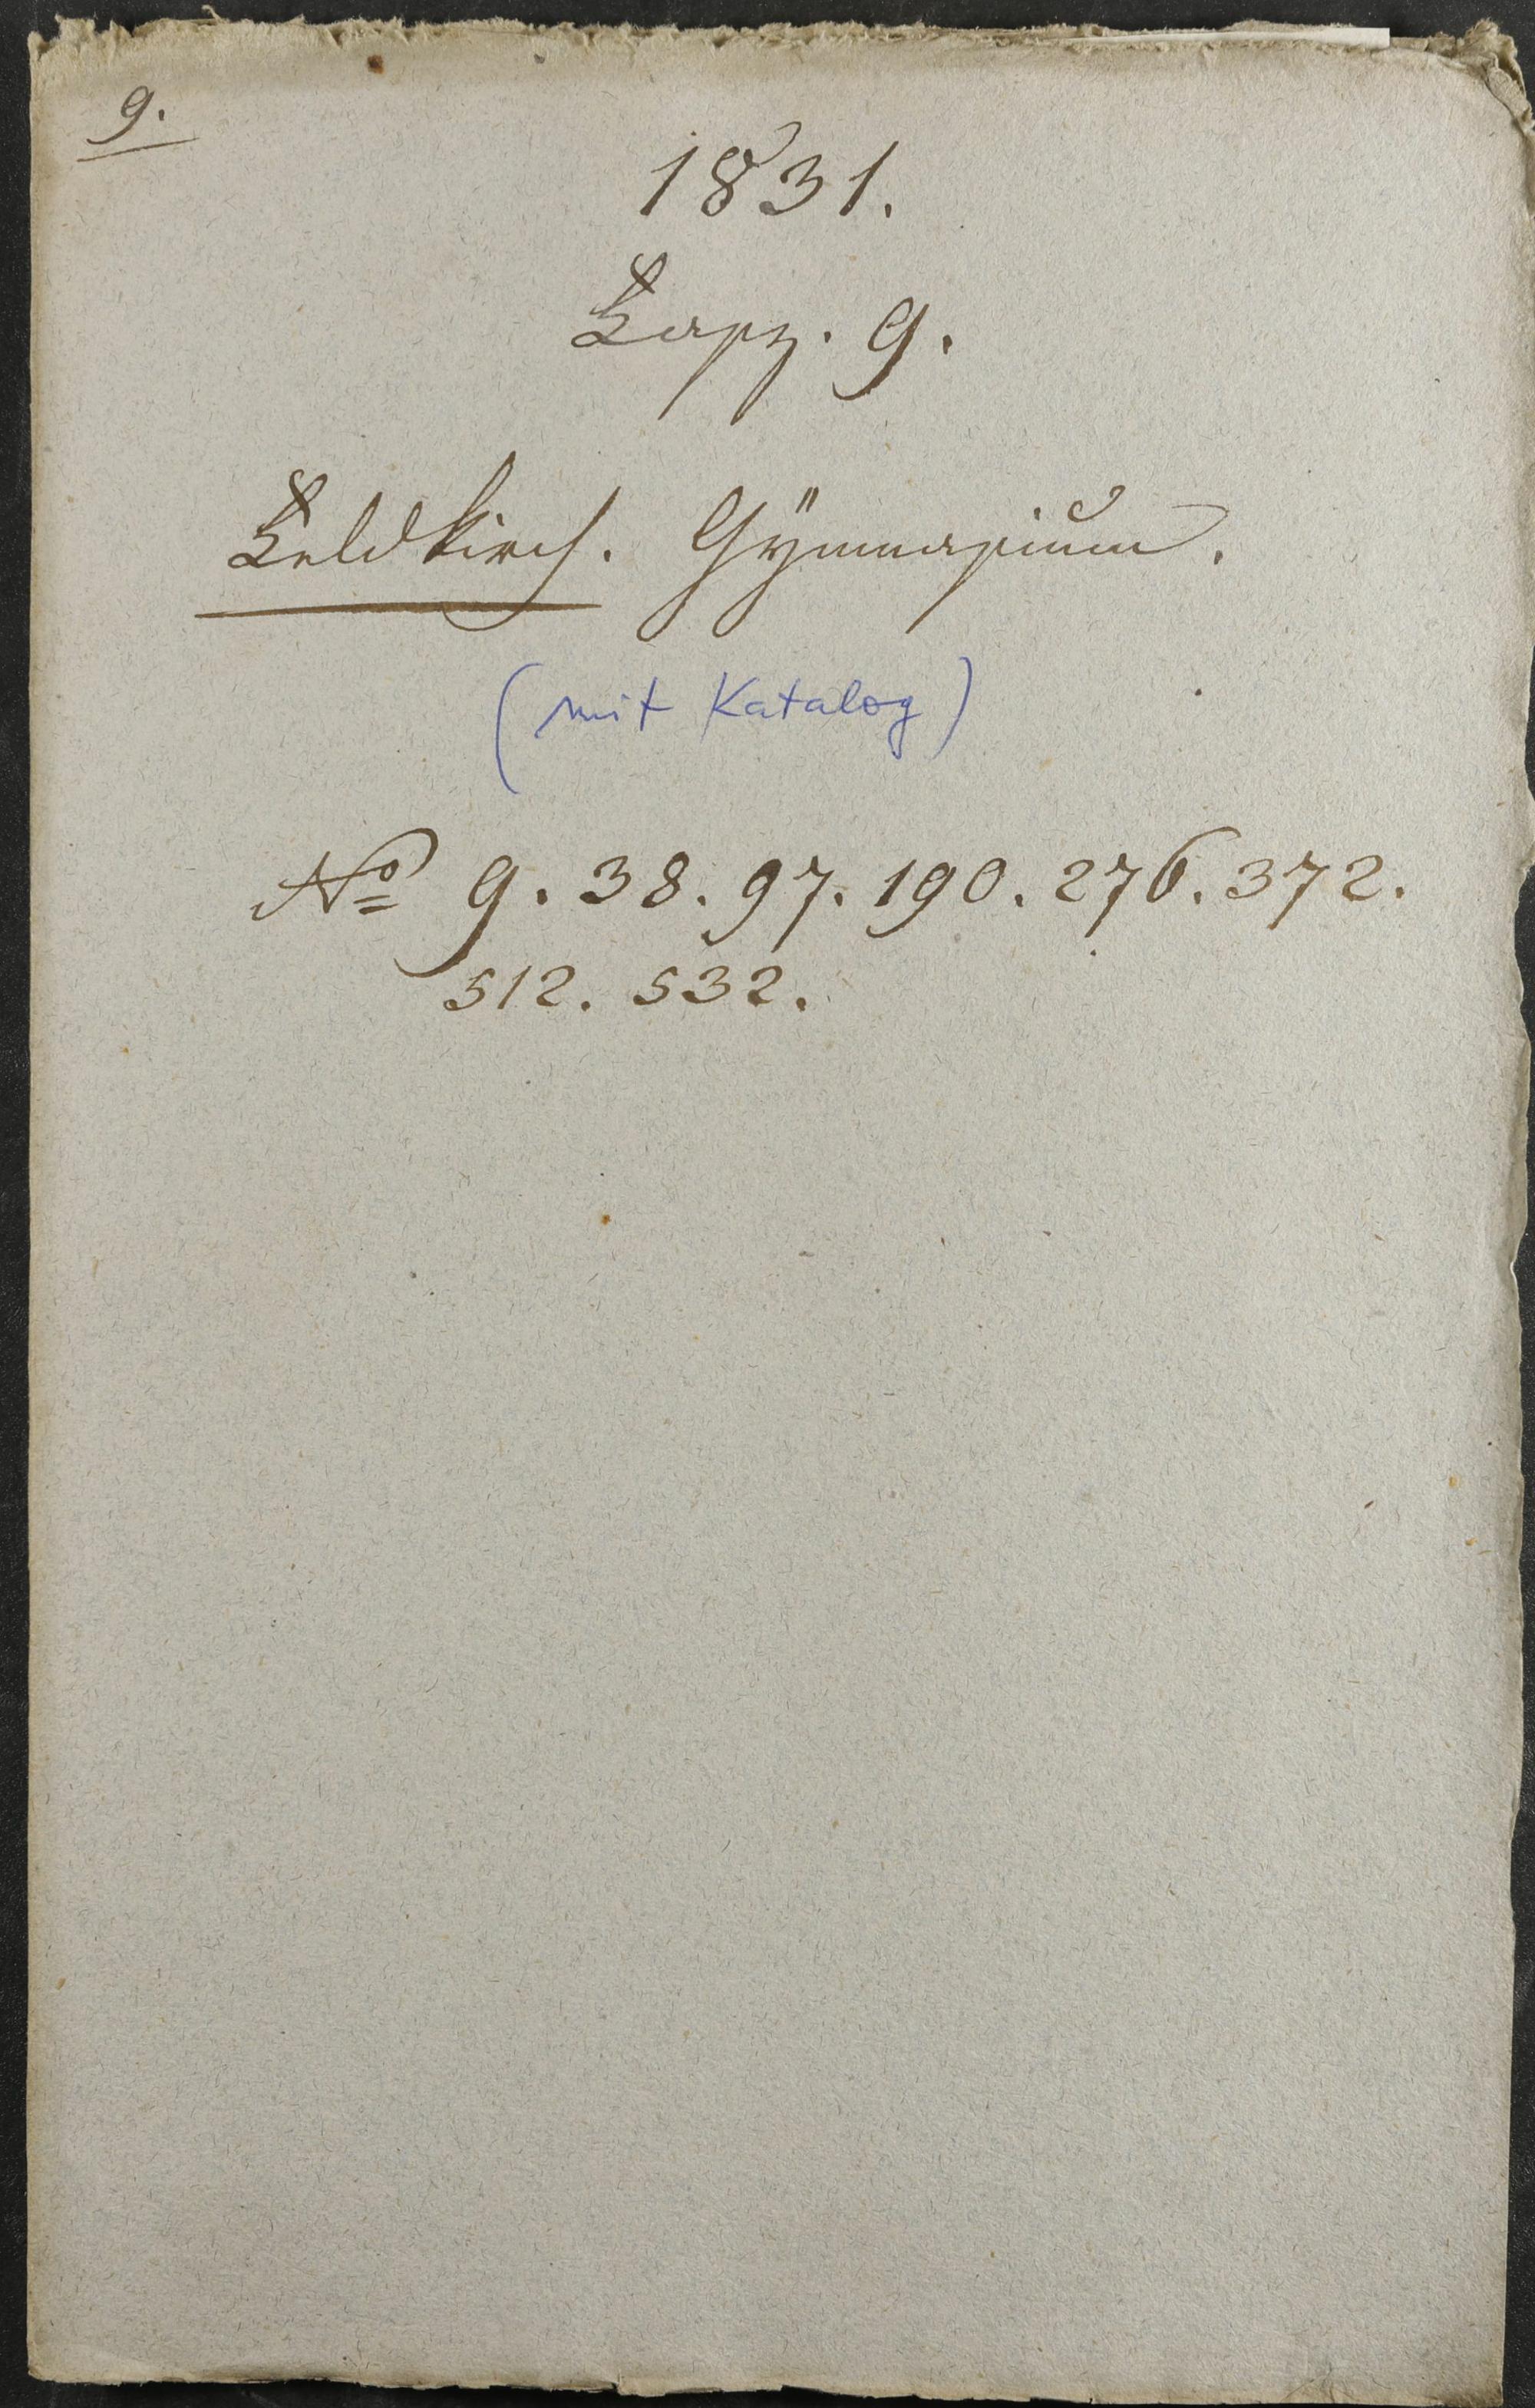 9.
1831.
Fasz. 9.
Feldkirch. Gÿmnasium.
(mit Katalog)
No 9. 38. 97. 190. 276. 372.
512. 532.